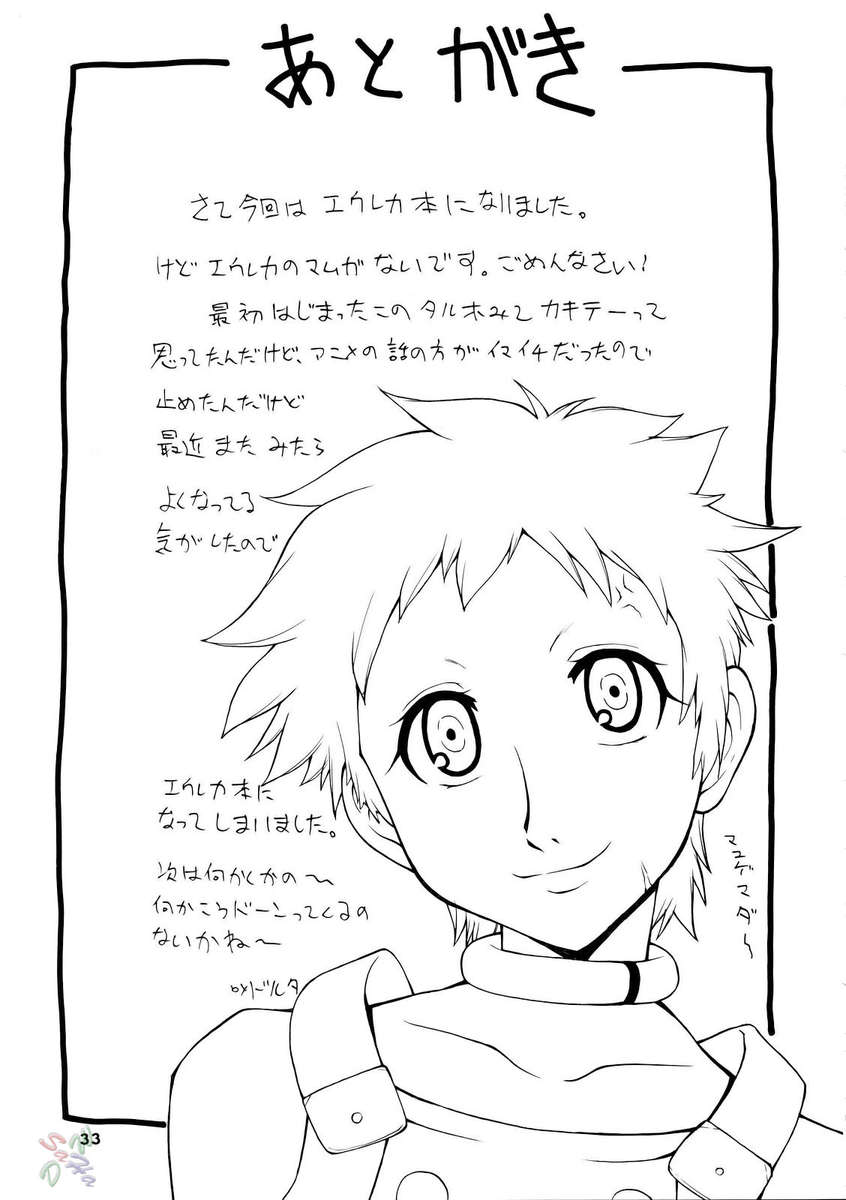 あとがき
さて今回は エウレカ本になりました。
けど エウレカのマムが ないです。ごめんなさい！
最初はじまったこの タルホみて カキテーって
思ってたんだけど、アニメの話の方がイマイチだったので
止めたんだけど
最近 また みたら
よくなってる
気がしたので
エウレカ本に
なってしまいました。
次は何かくかの〜
何かこうドーンってくるの
ないかね〜
マユゲマダ〜
33